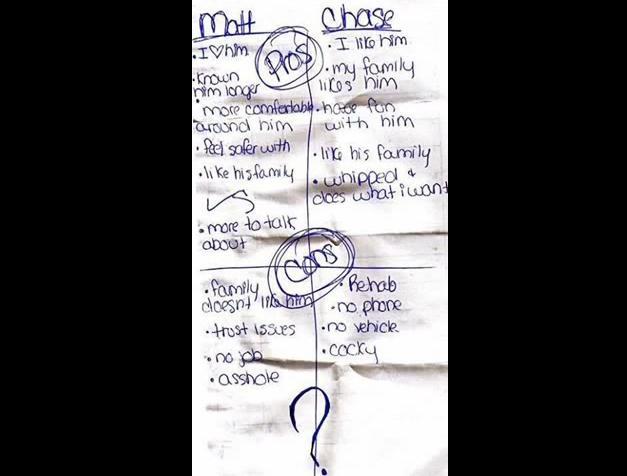 Matt
Chase
Pros
• I ♡ him
• known
him longer
• more comfortable
around him
• feel safer with
• like his family
• more to talk
about
• I like him
• my family
likes him
• have fun
with him
• like his family
• whipped &
does what i want
Cons
• family
doesnt like him
• trust issues
• no job
• asshole
• Rehab
• no phone
• no vehicle
• cocky
?